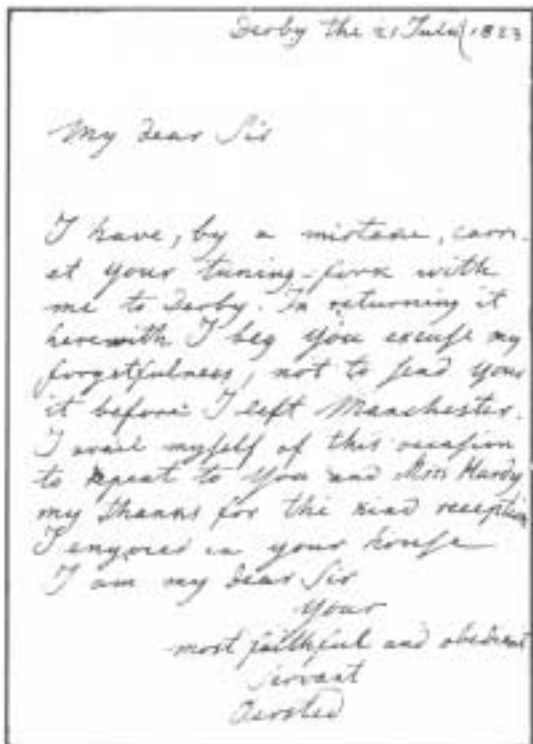 Derby the 21 July 1823
My dear Sir
I have, by a mistake, carri-
et your tuning-fork with
me to Derby. In returning it
herewith I beg you excuse my
forgetfulness, not to send your
it before I left Manchester.
I avail myself of this occasion
to repeat to you and Mrs Hardy
my thanks for the kind reception
I enyoied in your house
I am my dear Sir
your
most faithful and obedient
servant
Oersted